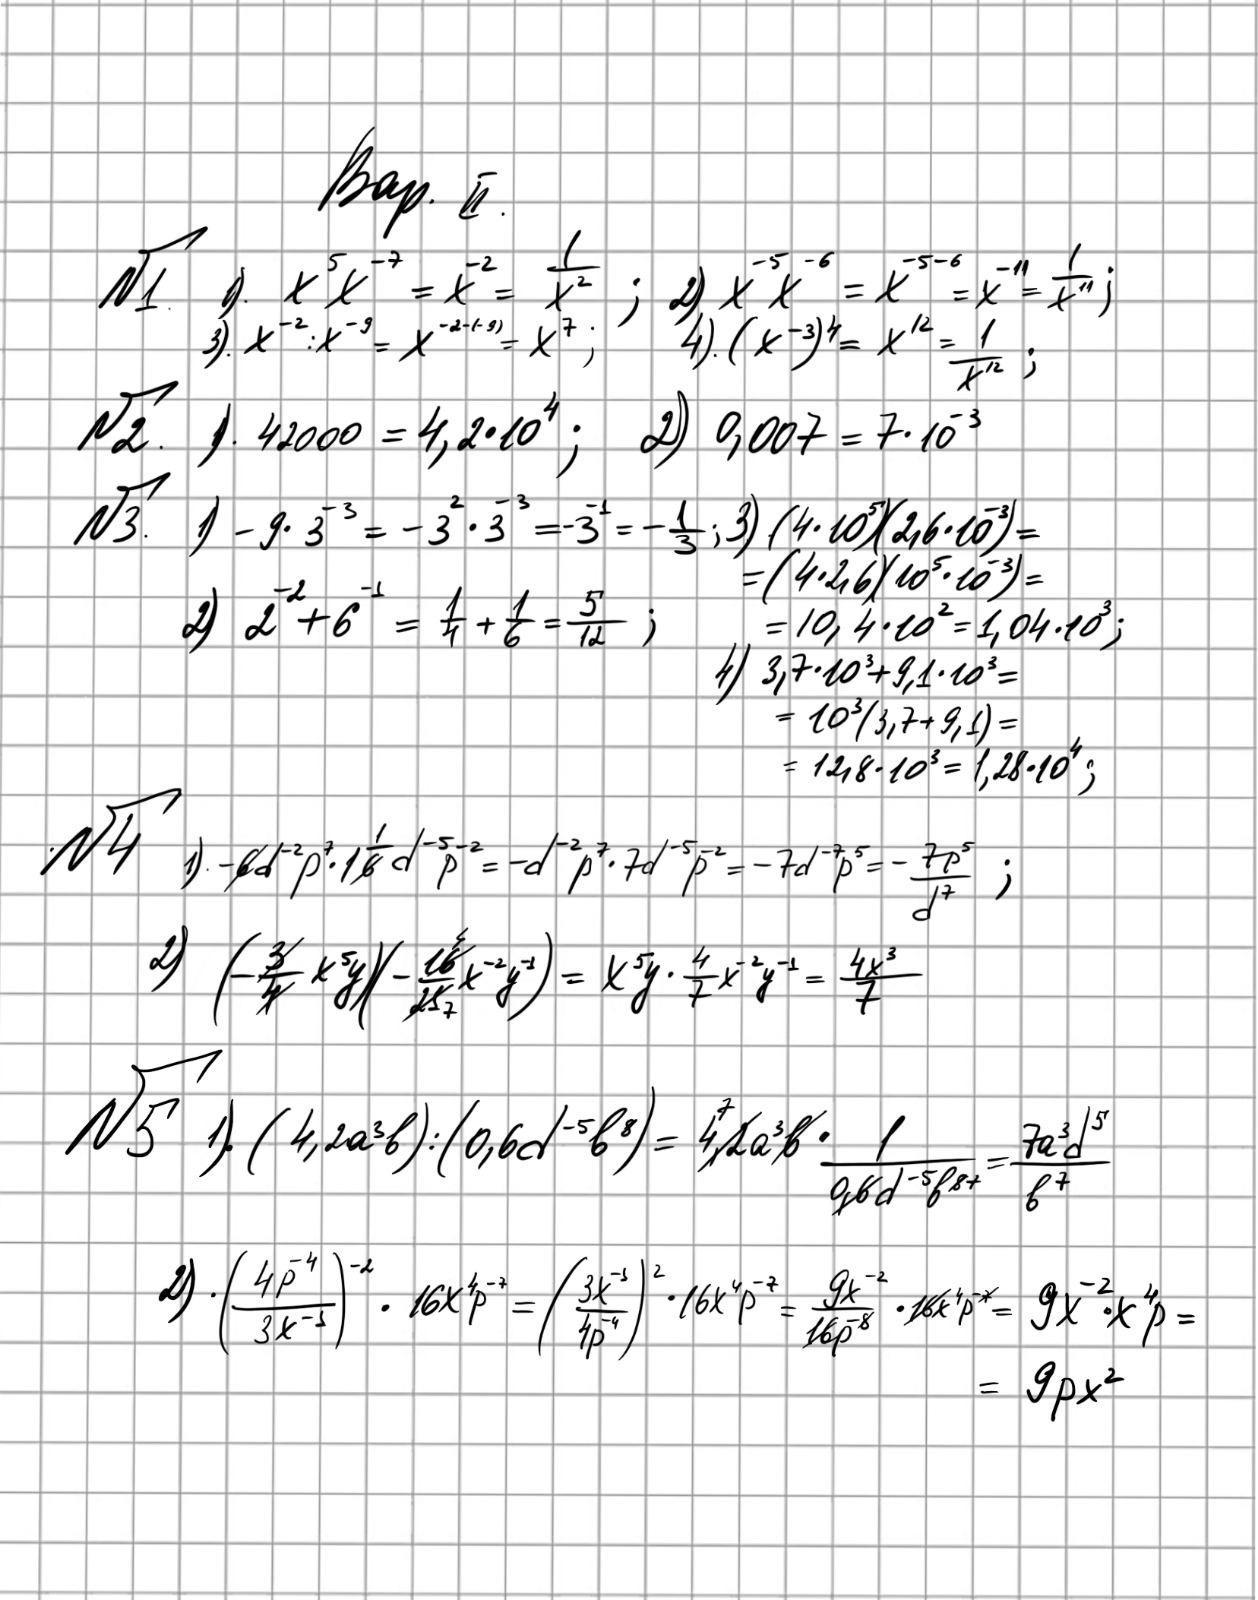 Вар. II.
№1. 1). x⁵x⁻⁷ = x⁻² = 1/x² ; 2) x⁻⁵x⁻⁶ = x⁻⁵⁻⁶ = x⁻¹¹ = 1/x¹¹ ;
3). x⁻² : x⁻⁹ = x⁻²⁻⁽⁻⁹⁾ = x⁷ ; 4). (x⁻³)⁴ = x¹² = 1/x¹² ;
№2. 1). 42000 = 4,2·10⁴ ; 2) 0,007 = 7·10⁻³
№3. 1) -9·3⁻³ = -3²·3⁻³ = -3⁻¹ = -1/3 ; 3) (4·10⁵)(2,6·10⁻³) =
= (4·2,6)(10⁵·10⁻³) =
2) 2⁻² + 6⁻¹ = 1/4 + 1/6 = 5/12 ; = 10,4·10² = 1,04·10³ ;
4) 3,7·10³ + 9,1·10³ =
= 10³(3,7 + 9,1) =
= 12,8·10³ = 1,28·10⁴ ;
№4 1). -6d⁻²p⁷·1 1/6 d⁻⁵p⁻² = -d⁻²p⁷·7d⁻⁵p⁻² = -7d⁻⁷p⁵ = -7p⁵/d⁷ ;
2) (-3/4 x⁵y)(-16/21 x⁻²y⁻¹) = x⁵y · 4/7 x⁻²y⁻¹ = 4x³/7
№5 1). (4,2a³b) : (0,6d⁻⁵b⁸) = 4,2a³b · 1/(0,6d⁻⁵b⁸) = 7a³d⁵/b⁷
2) · (4p⁻⁴/3x⁻¹)⁻² · 16x⁴p⁻⁷ = (3x⁻¹/4p⁻⁴)² · 16x⁴p⁻⁷ = 9x⁻²/16p⁻⁸ · 16x⁴p⁻⁷ = 9x⁻²·x⁴p =
= 9px²